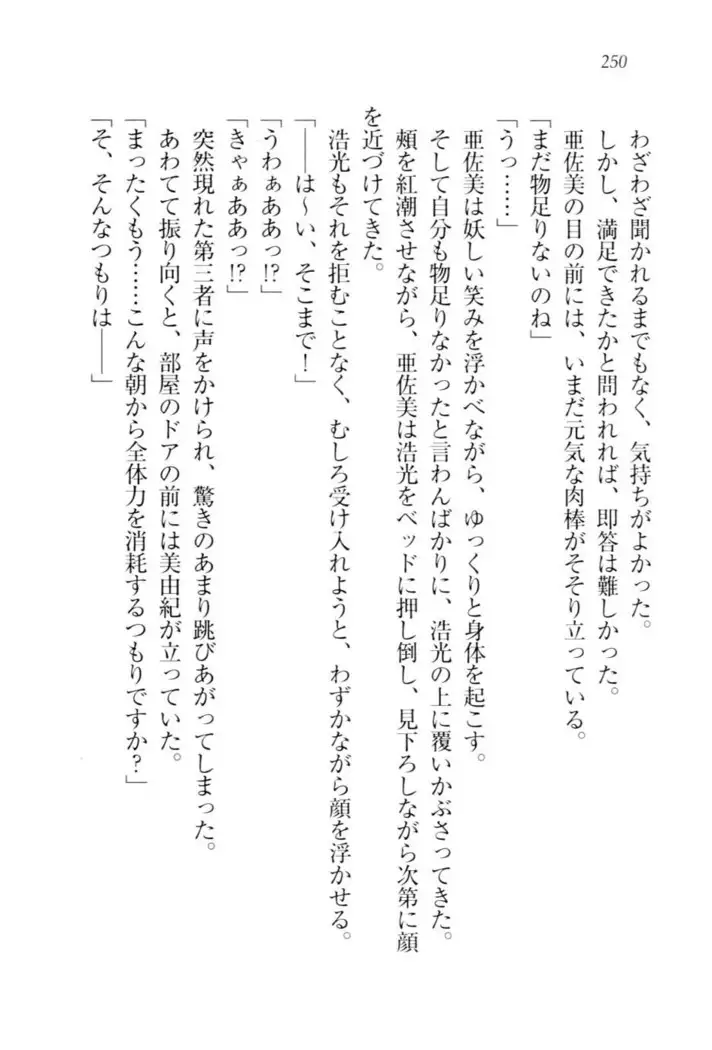 250
わざわざ聞かれるまでもなく、気持ちがよかった。
しかし、満足できたかと問われれば、即答は難しかった。
亜佐美の目の前には、いまだ元気な肉棒がそそり立っている。
「まだ物足りないのね」
「うっ……」
亜佐美は妖しい笑みを浮かべながら、ゆっくりと身体を起こす。
そして自分も物足りなかったと言わんばかりに、浩光の上に覆いかぶさってきた。
頰を紅潮させながら、亜佐美は浩光をベッドに押し倒し、見下ろしながら次第に顔
を近づけてきた。
浩光もそれを拒むことなく、むしろ受け入れようと、わずかながら顔を浮かせる。
「――は～い、そこまで！」
「うわぁああっ!?」
「きゃぁああっ!?」
突然現れた第三者に声をかけられ、驚きのあまり跳びあがってしまった。
あわてて振り向くと、部屋のドアの前には美由紀が立っていた。
「まったくもう……こんな朝から全体力を消耗するつもりですか？」
「そ、そんなつもりは――」